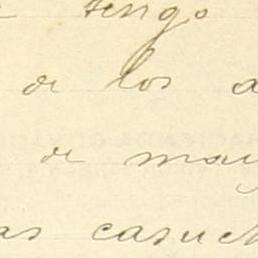 tengo
de los a
de may
as casuch